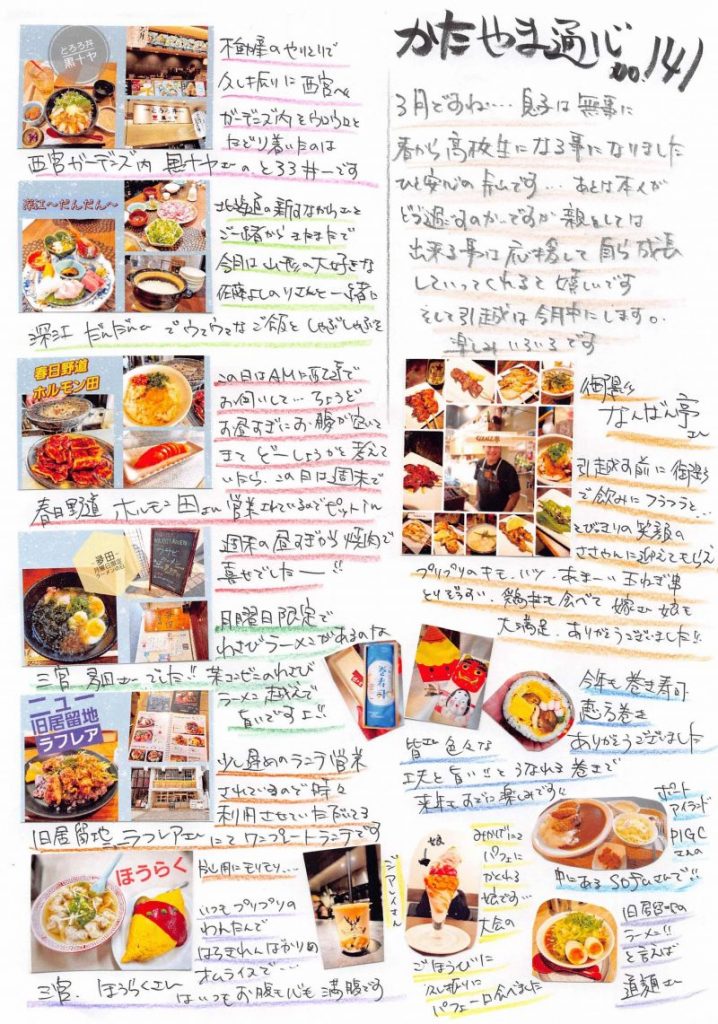 かたやま通心 no.141
3月ですね… 息子は無事に
春から高校生になる事になりました
ひと安心の片山です… あとは本人が
どう過ごすのかですが 親としては
出来る事は応援して 自ら成長
していってくれると嬉しいです
そして引越は今月中にします。
楽しみいろいろです
とろろ丼
黒十や
不動産のやりとりで
久し振りに西宮へ
ガーデンズ内をウロウロと
たどり着いたのは
西宮ガーデンズ内 黒十やさんの とろろ丼ーです
深江〜だんだん〜
北海道の新
ご一緒から またまたで
今月は山形の大好きな
佐藤よしのりさんと一緒に
深江 だんだんさんでウマウマなご飯としゃぶしゃぶを
春日野道
ホルモン田
この日はAMに西宮で
お伺いして… ちょうど
お昼すぎにお腹が空いて
きて どーしょうかを考えて
いたら、この日は週末で
春日野道 ホルモン田さん 営業されているのでピットイン
週末の昼すぎから焼肉で
喜せでしたー!!
月曜日限定
ラーメンの日
月曜日限定で
わさびラーメンがあるのな
三宮 さーでした!! 某コンビニのわさび
ラーメン 越えで
旨いですよ!!
ニュー
旧居留地
ラフレア
少し遅めのランチ営業
されているので時々
利用させていただいてる
旧居留地 ラフレアさんにてワンプレートランチです
ほうらく
いつもプリプリの
わんたんで
はちきれんばかりの
オムライスで…
三宮、ほうらくさん はいつもお腹も心も満腹です
街場の
なんばん亭
さん
引越す前に街場
で飲みにフラフラと…
とびきりの笑顔の
ささやんに迎えてもらえ
プリプリのキモ、ハツ、あまーい玉ねぎ串
とりぞうすい、鶏丼も食べて 嫁さん娘も
大満足、ありがとうございました!!
巻寿司
今年も巻き寿司
恵方巻き
ありがとうございました
皆さん色々な
工夫と旨い!!とうなれる巻きで
来年もすでに楽しみです!!
ポート
アイランド
PIGCさんの
中にあるSOFUさんで!!
娘
みかげにて
パフェに
かどれる
娘です…
大会の
ごほうびに
久し振りに
パフェ一口食べました
旧居留地の
ラーメン!!
と言えば
道麺さん